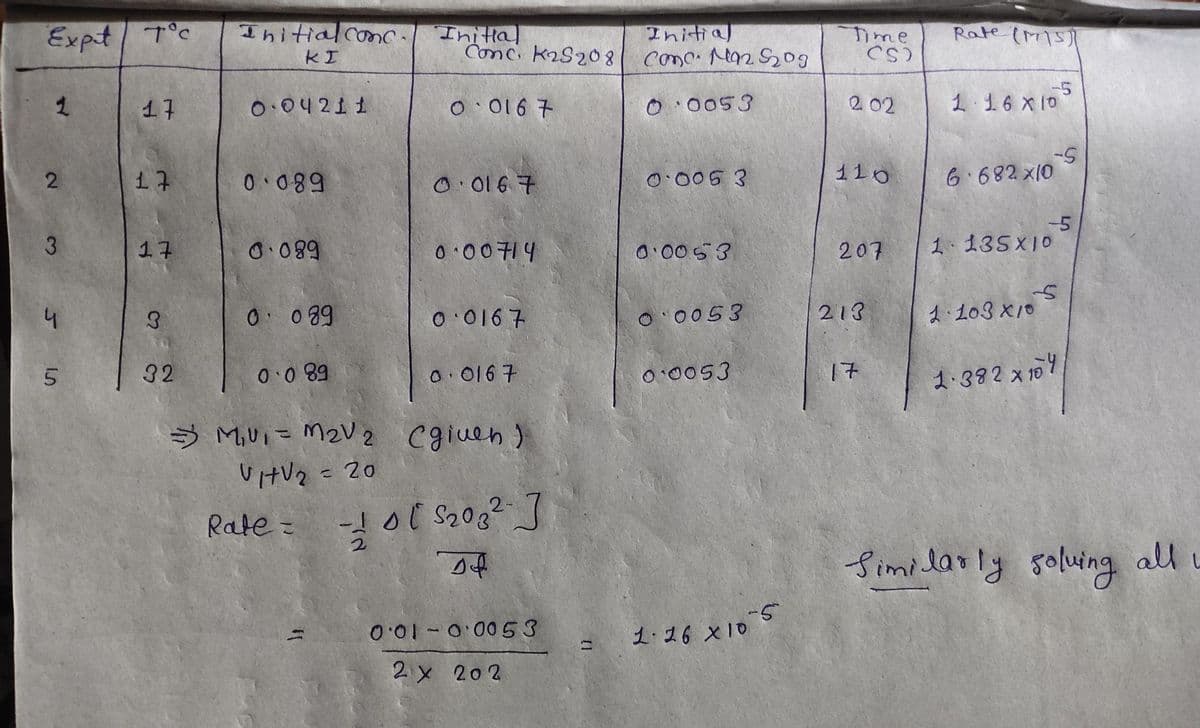 Expt T°C Initial conc. KI Initial Conc. K2S2O8 Initial conc. Na2S2O3 Time (S) Rate (M/S)
1 17 0.04211 0.0167 0.0053 202 1.16 x 10^-5
2 17 0.089 0.0167 0.0053 110 6.682 x10^-5
3 17 0.089 0.00714 0.0053 207 1.135x10^-5
4 3 0.089 0.0167 0.0053 213 1.103 x10^-5
5 32 0.089 0.0167 0.0053 17 1.382 x 10^-4
⇒ M1V1 = M2V2 (given)
V1+V2 = 20
Rate = -1/2 Δ[S2O3^2-] / Δt
Similarly solving all
= 0.01 - 0.0053 / 2 x 202 = 1.16 x10^-5